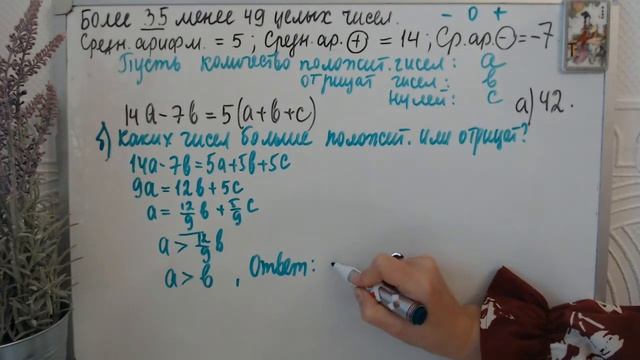 Более 35 менее 49 целых чисел. - 0 +
Средн. арифм. = 5 ; Средн. ар. ⊕ = 14 ; Ср. ар. ⊖ = -7
Пусть количество положит. чисел : a
отрицат чисел : b
нулей : c
14a - 7b = 5(a+b+c) а) 42.
б) Каких чисел больше положит. или отрицат?
14a - 7b = 5a + 5b + 5c
9a = 12b + 5c
a = 12/9 b + 5/9 c
a > 12/9 b
a > b , Ответ: